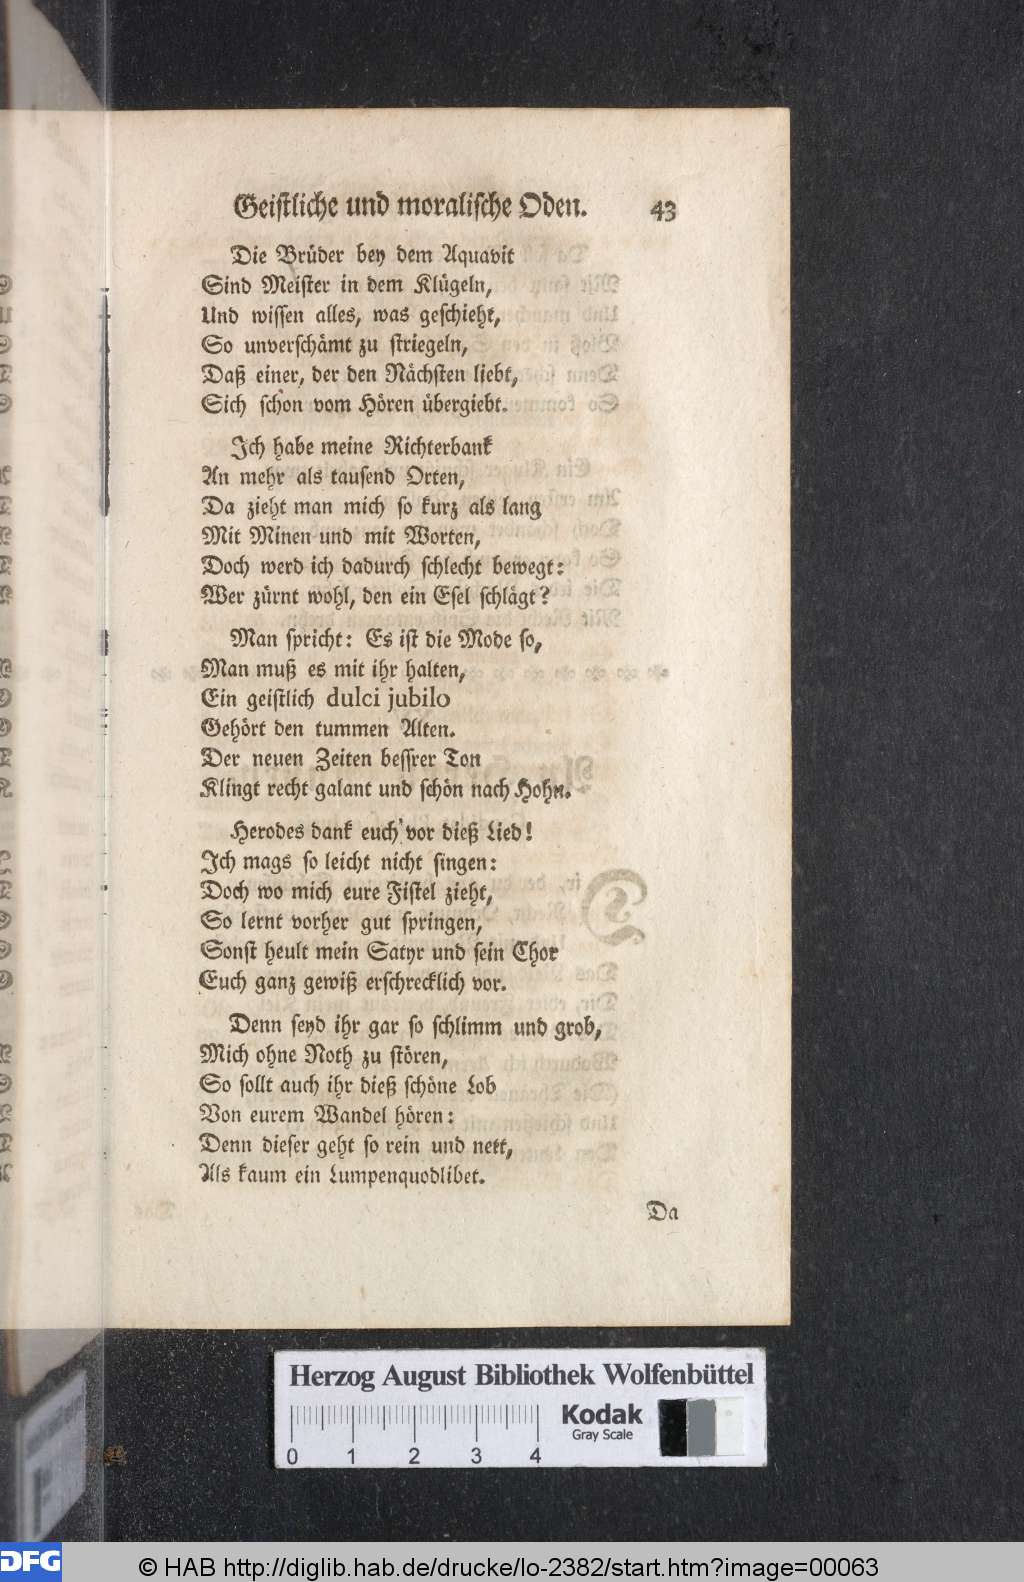 Geistliche und moralische Oden. 43
Die Brüder bey dem Aquavit
Sind Meister in dem Klügeln,
Und wissen alles, was geschieht,
So unverschämt zu striegeln,
Daß einer, der den Nächsten liebt,
Sich schon vom Hören übergiebt.
Ich habe meine Richterbank
An mehr als tausend Orten,
Da zieht man mich so kurz als lang
Mit Minen und mit Worten,
Doch werd ich dadurch schlecht bewegt:
Wer zürnt wohl, den ein Esel schlägt?
Man spricht: Es ist die Mode so,
Man muß es mit ihr halten,
Ein geistlich dulci jubilo
Gehört den tummen Alten.
Der neuen Zeiten bessrer Ton
Klingt recht galant und schön nach Hohn.
Herodes dank euch vor dieß Lied!
Ich mags so leicht nicht singen:
Doch wo mich eure Fistel zieht,
So lernt vorher gut springen,
Sonst heult mein Satyr und sein Chor
Euch ganz gewiß erschrecklich vor.
Denn seyd ihr gar so schlimm und grob,
Mich ohne Noth zu stören,
So sollt auch ihr dieß schöne Lob
Von eurem Wandel hören:
Denn dieser geht so rein und nett,
Als kaum ein Lumpenquodlibet.
Da
Herzog August Bibliothek Wolfenbüttel
Kodak
Gray Scale
0 1 2 3 4
DFG
© HAB http://diglib.hab.de/drucke/lo-2382/start.htm?image=00063